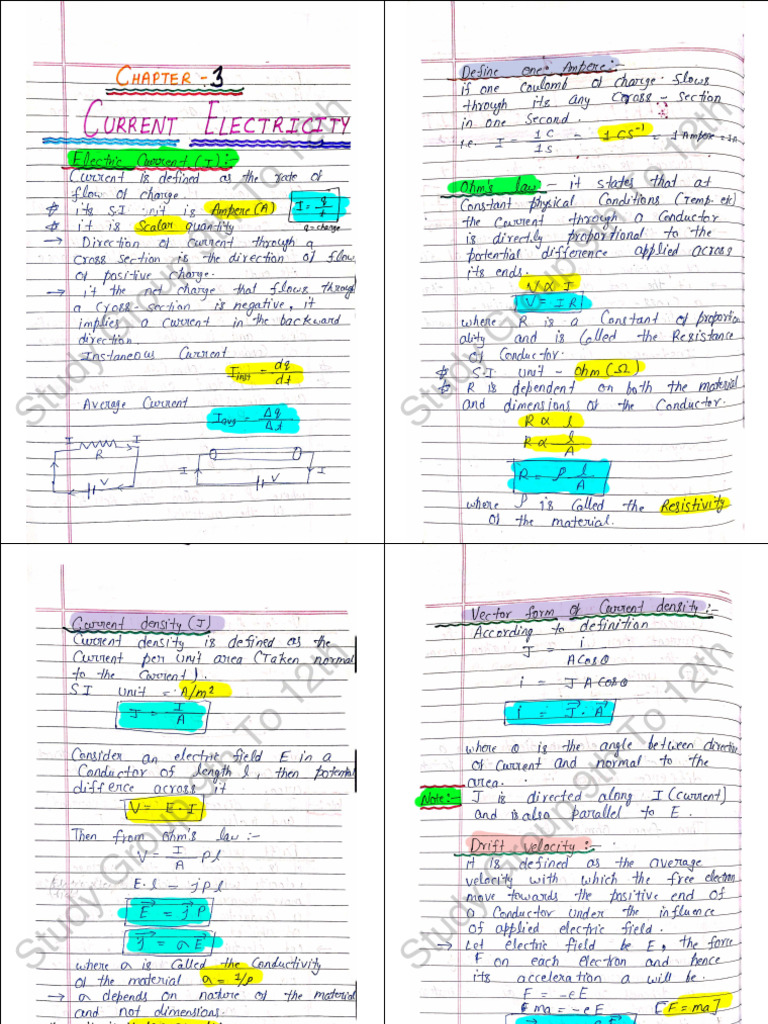 CHAPTER :- 3
CURRENT ELECTRICITY
Electric Current (I) :-
Current is defined as the rate of
flow of charge.
its S.I unit is Ampere (A)
I = q/t
it is Scalar quantity
q = charge
→ Direction of current through a
cross section is the direction of flow
of positive charge.
→ if the net charge that flows through
a cross-section is negative, it
implies a current in the backward
direction.
Instaneous Current
I inst = dq/dt
Average Current
I avg = Δq/Δt
I I
R
V
I I
V
Define one Ampere :-
if one coulomb of charge flows
through its any cross-section
in one second.
i.e. I = 1C/1s = 1 CS⁻¹ = 1 Ampere = 1A
Ohm's law - it states that at
Constant physical Conditions (Temp. etc)
the Current through a Conductor
is directly proportional to the
potential difference applied across
its ends.
V ∝ I
V = IR
where R is a Constant of proportion
ality and is Called the Resistance
of Conductor.
S.I unit - Ohm (Ω)
R is dependent on both the material
and dimensions of the Conductor.
R ∝ l
R ∝ l/A
R = ρ l/A
where ρ is Called the Resistivity
of the material.
Current density (J)
Current density is defined as the
Current per unit area (Taken normal
to the Current).
S.I unit = A/m²
J = I/A
Consider an electric field E in a
Conductor of length l, then potential
differce across it
V = E·l
Then from ohm's law :-
V = I/A ρl
E·l = jρl
E = jρ
j = σE
where σ is Called the Conductivity
of the material σ = 1/ρ
→ σ depends on nature of the material
and not dimensions.
Vector form of Current density :-
According to definition
J = i/ACosθ
i = JACosθ
i = J · A
where θ is the angle between direction
of Current and normal to the
area.
Note :- J is directed along I (current)
and is also parallel to E.
Drift velocity :-
it is defined as the average
velocity with which the free electron
move towards the positive end of
a Conductor under the influence
of applied electric field.
→ Let electric field be E, the force
F on each electron and hence
its acceleration a will be.
F = -eE
ma = -eE [F = ma]
Study Group 9th To 12th
Study Group 9th To 12th
Study Group 9th To 12th
Study Group 9th To 12th